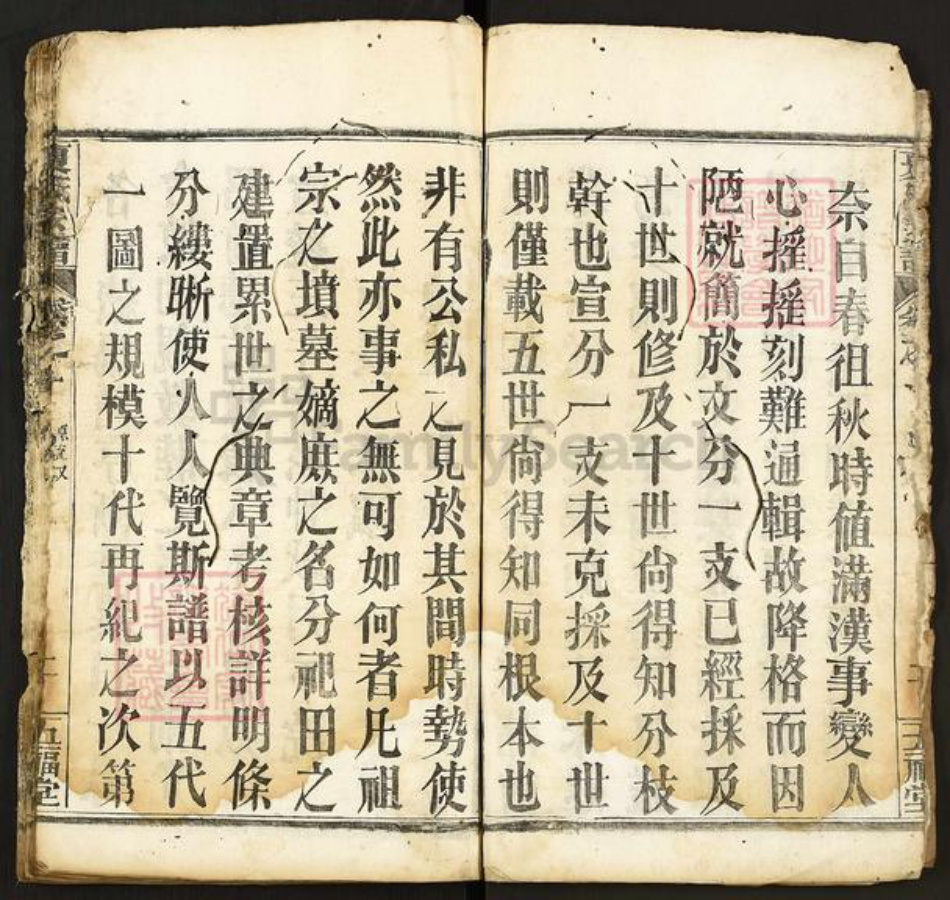 奈自春徂秋時值滿漢事變人
心摇摇刻難通輯故降格而因
陋就簡於文分一支已經採及
十世則修及十世尙得知分枝
幹也宣分一支未克採及十世
則僅載五世尙得知同根本也
非有公私之見於其間時勢使
然此亦事之無可如何者凡祖
宗之墳墓嫡庶之名分祀田之
建置累世之典章考核詳明條
分縷晰使人人覽斯譜以五代
一圖之規模十代再紀之次第
五福堂
五福堂
FamilySearch